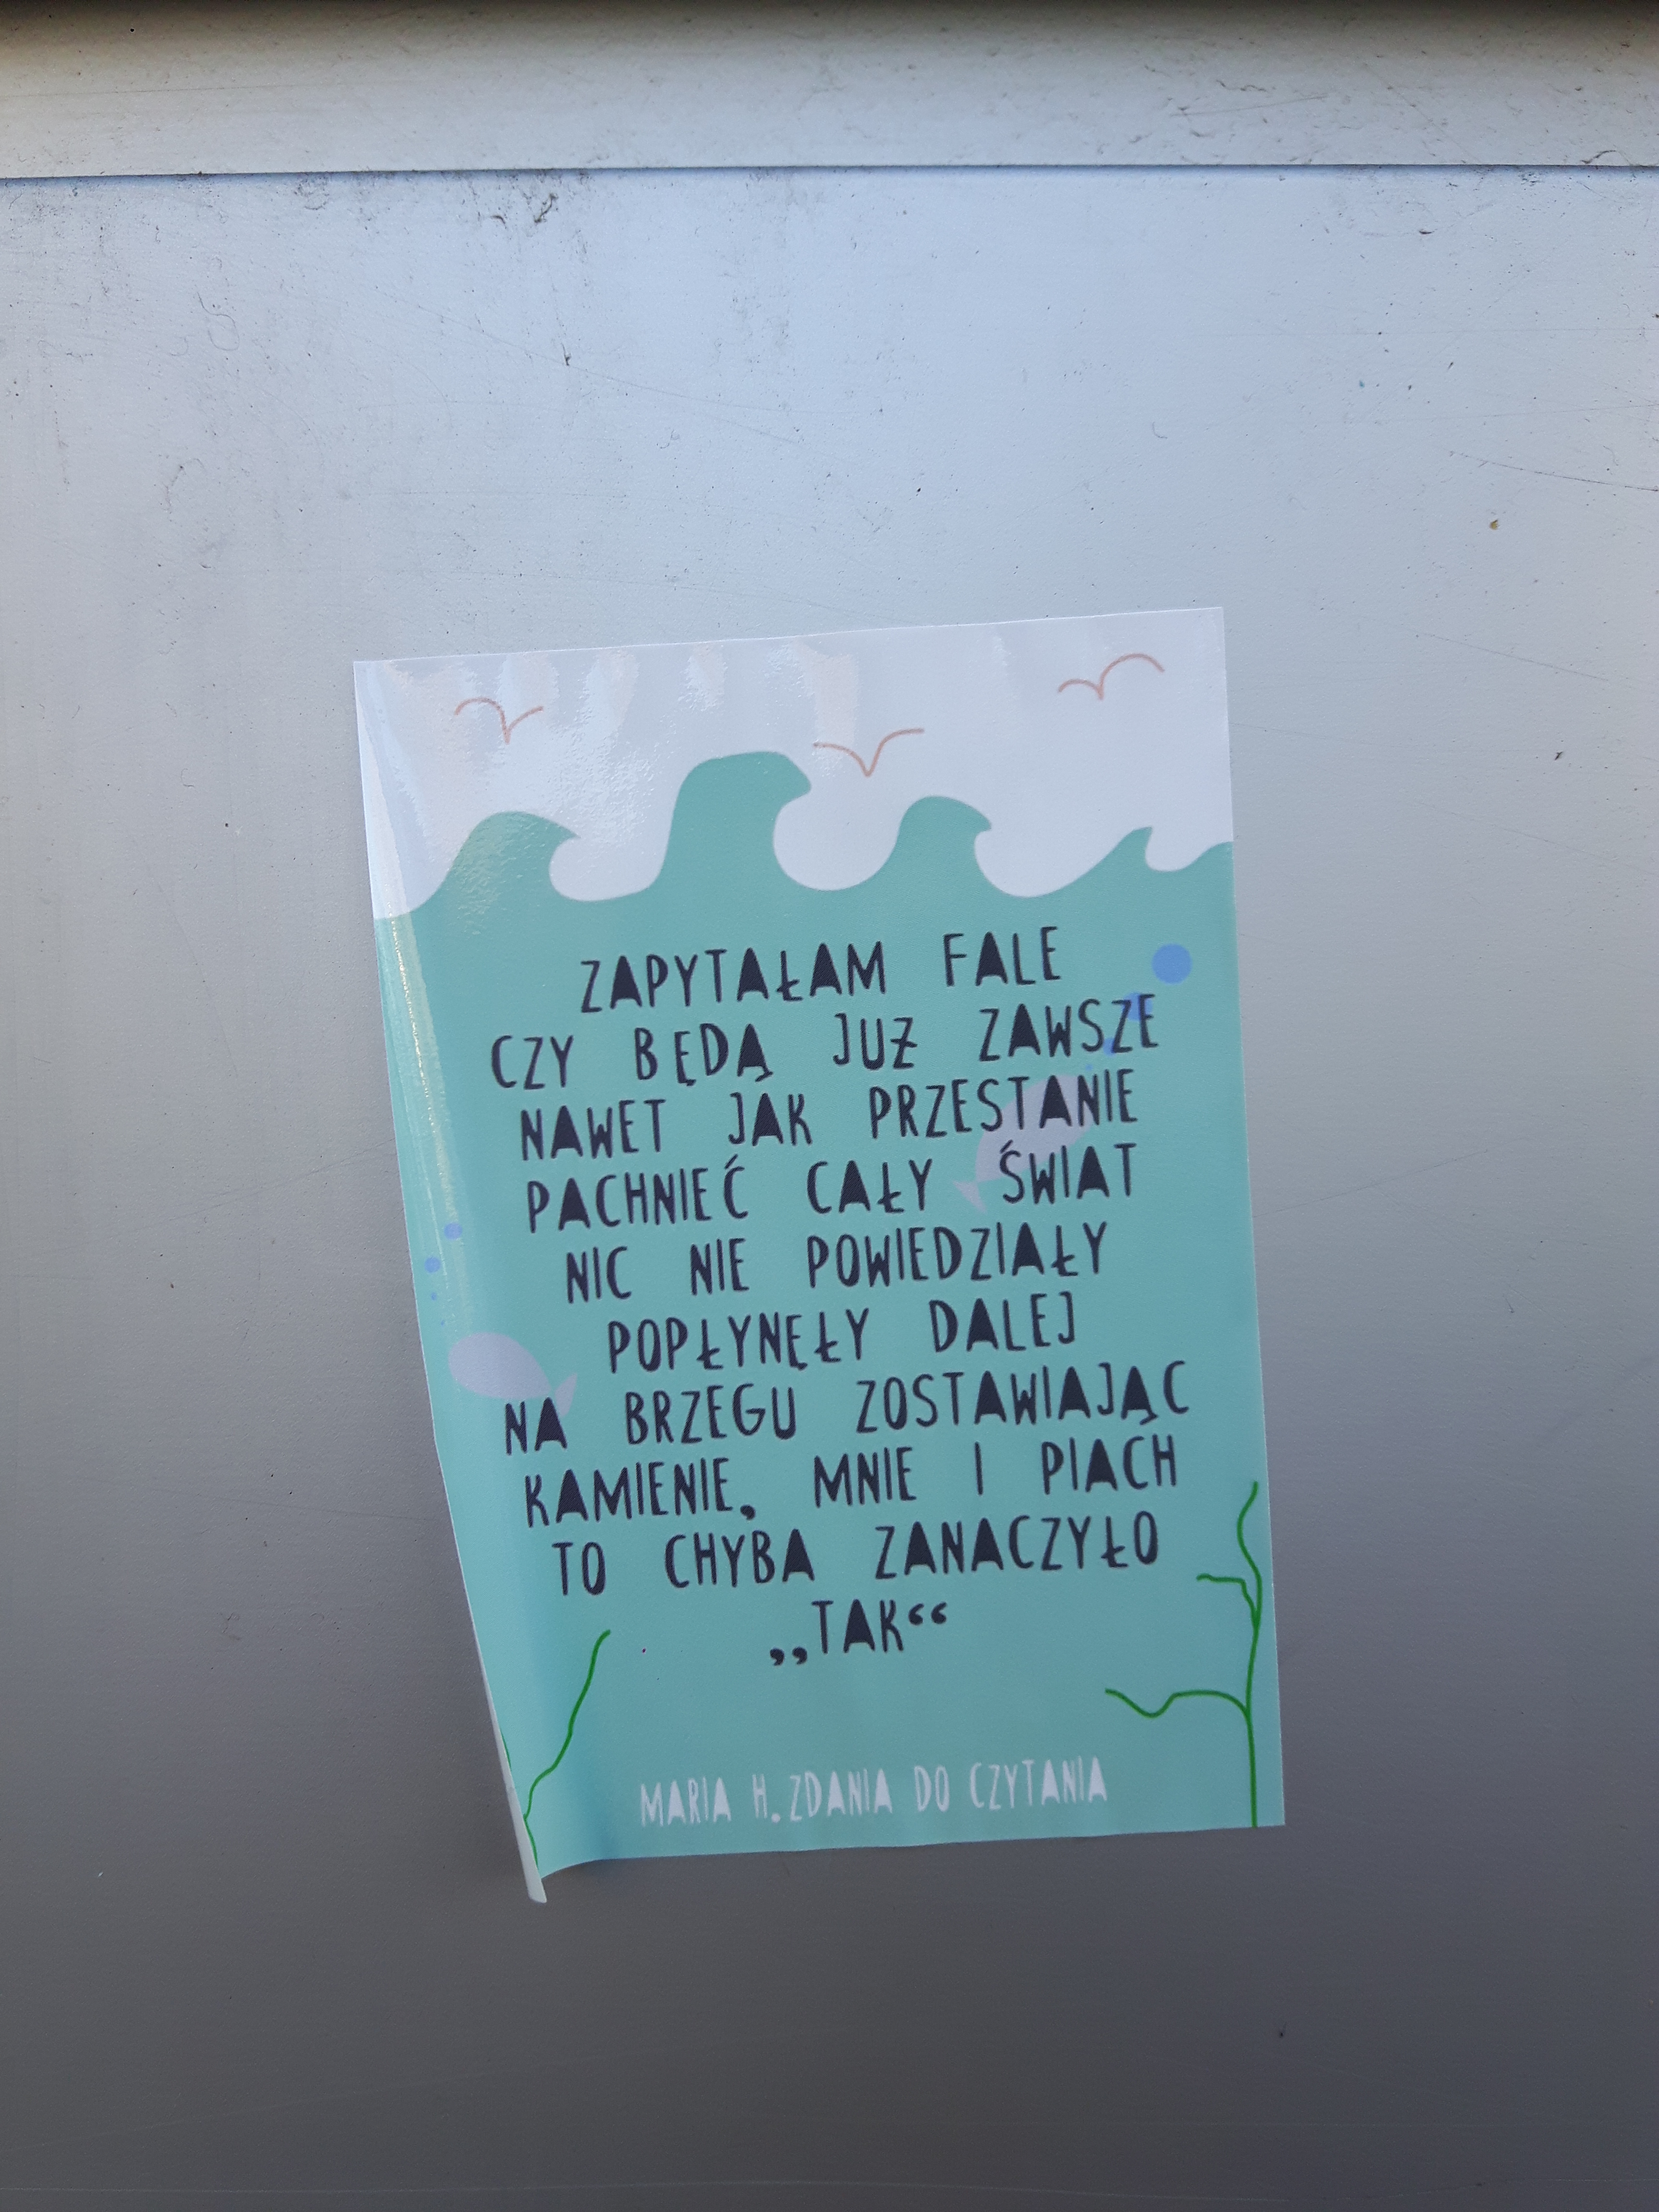 ZAPYTAŁAM FALE
CZY BĘDĄ JUŻ ZAWSZE
NAWET JAK PRZESTANIE
PACHNIEĆ CAŁY ŚWIAT
NIC NIE POWIEDZIAŁY
POPŁYNĘŁY DALEJ
NA BRZEGU ZOSTAWIAJĄC
KAMIENIE, MNIE I PIACH
TO CHYBA ZANACZYŁO
„TAK“
MARIA H. ZDANIA DO CZYTANIA